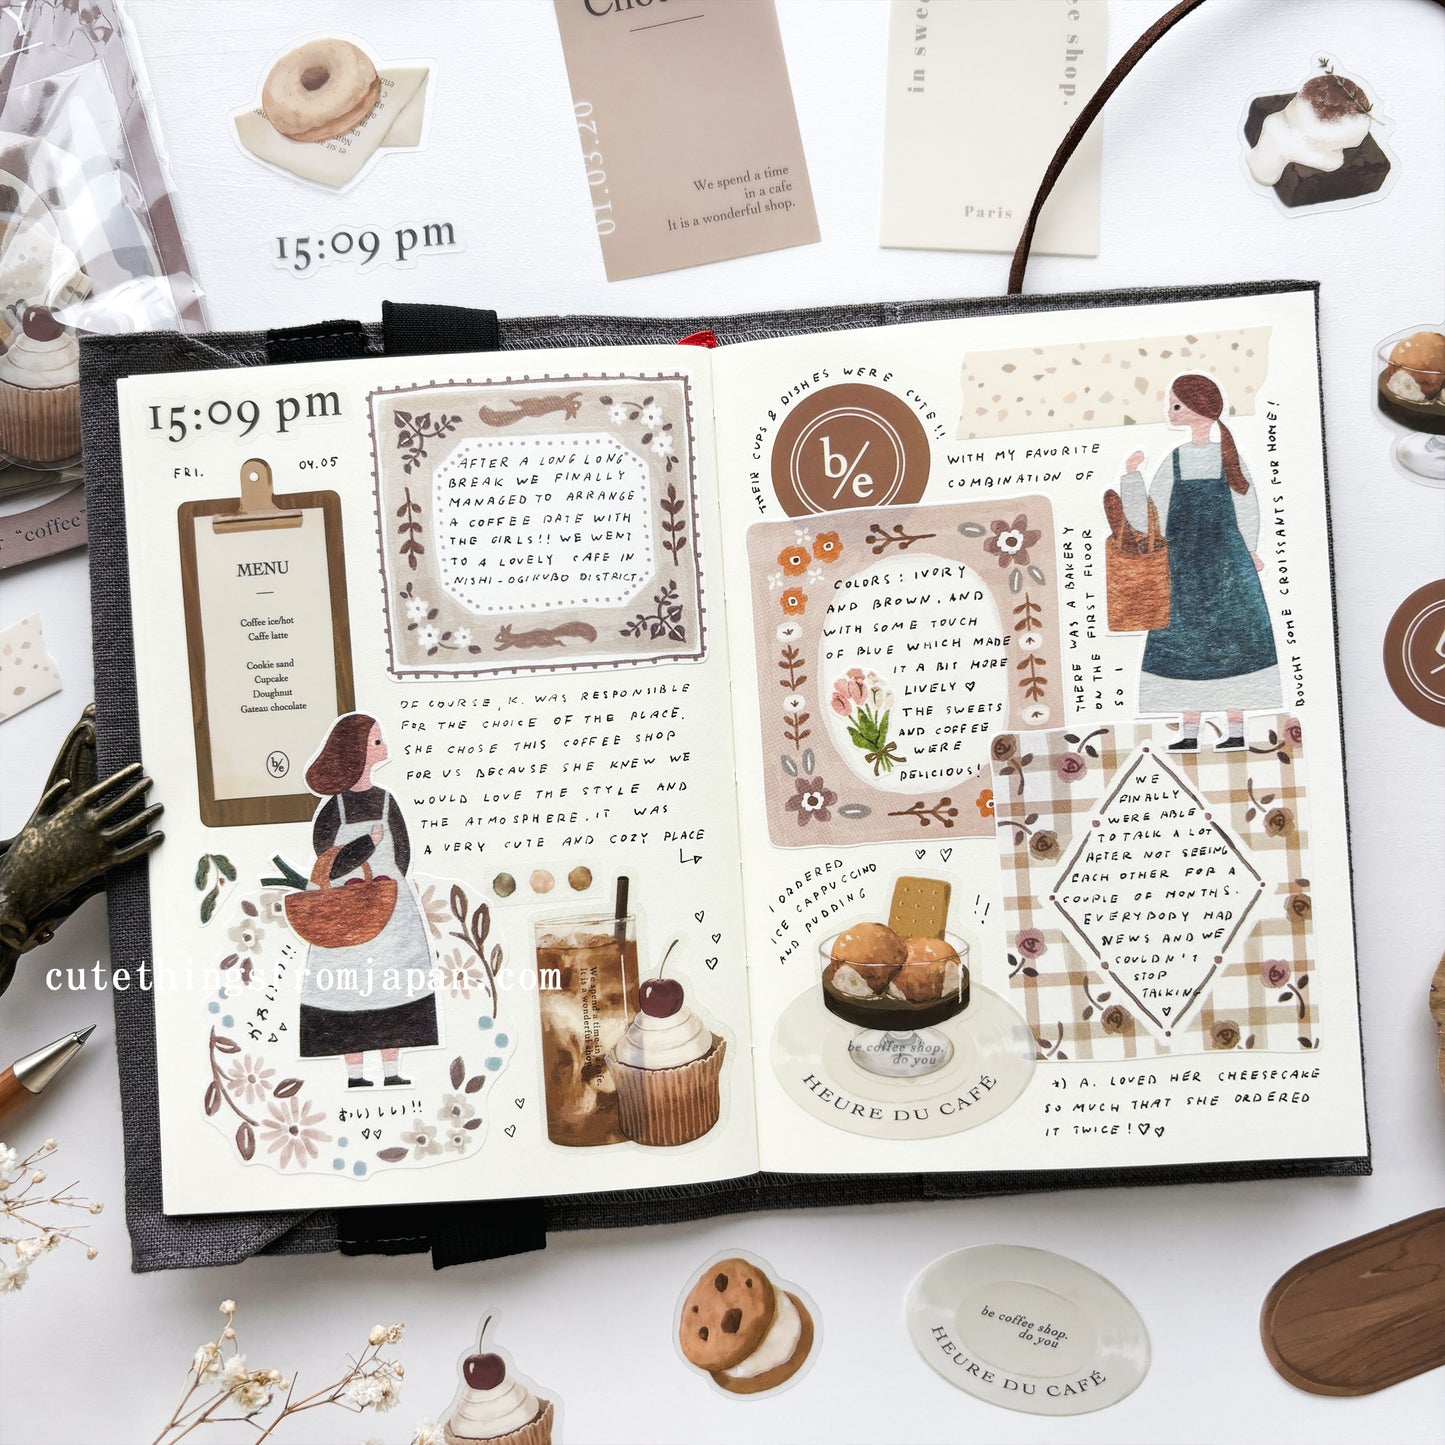 15:09 pm
01.03.20
We spend a time
in a cafe
It is a wonderful shop.
in swee
ee shop.
Paris
"coffee"
15:09 pm
FRI. 04.05
MENU
Coffee ice/hot
Caffe latte
Cookie sand
Cupcake
Doughnut
Gateau chocolate
b/e
AFTER A LONG LONG
BREAK WE FINALLY
MANAGED TO ARRANGE
A COFFEE DATE WITH
THE GIRLS!! WE WENT
TO A LOVELY CAFE IN
NISHI-OGIKUBO DISTRICT.
OF COURSE, K. WAS RESPONSIBLE
FOR THE CHOICE OF THE PLACE.
SHE CHOSE THIS COFFEE SHOP
FOR US BECAUSE SHE KNEW WE
WOULD LOVE THE STYLE AND
THE ATMOSPHERE. IT WAS
A VERY CUTE AND COZY PLACE
かわいい!!
おいしい!!
We spend a time in a cafe.
It is a wonderful shop.
cutethingsfromjapan.com
THEIR CUPS & DISHES WERE CUTE!!
b/e
WITH MY FAVORITE
COMBINATION OF
COLORS: IVORY
AND BROWN. AND
WITH SOME TOUCH
OF BLUE WHICH MADE
IT A BIT MORE
LIVELY ♡
THE SWEETS
AND COFFEE
WERE
DELICIOUS!
THERE WAS A BAKERY
ON THE FIRST FLOOR
SO I
BOUGHT SOME CROISSANTS FOR HOME!
I ORDERED
ICE CAPPUCCINO
AND PUDDING
!!
be coffee shop.
do you
HEURE DU CAFÉ
WE
FINALLY
WERE ABLE
TO TALK A LOT
AFTER NOT SEEING
EACH OTHER FOR A
COUPLE OF MONTHS.
EVERYBODY HAD
NEWS AND WE
COULDN'T
STOP
TALKING
*) A. LOVED HER CHEESECAKE
SO MUCH THAT SHE ORDERED
IT TWICE! ♡♡
be coffee shop.
do you
HEURE DU CAFÉ